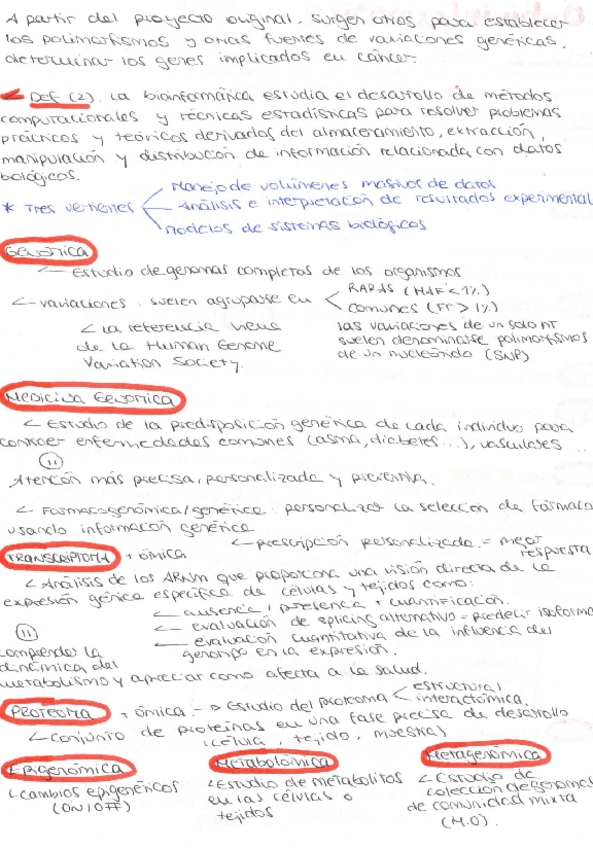 A partir del proyecto original, surgen otros para establecer
los polimorfismos y otras fuentes de variaciones genéticas,
determinar los genes implicados en cáncer.
Def (2). La bioinformática estudia el desarrollo de métodos
computacionales y técnicas estadísticas para resolver problemas
prácticos y teóricos derivados del almacenamiento, extracción,
manipulación y distribución de información relacionada con datos
biológicos.
Manejo de volúmenes masivos de datos
* Tres vertientes Análisis e interpretación de resultados experimental
Modelos de sistemas biológicos
GENÓMICA
Estudio de genomas completos de los organismos
variaciones: suelen agruparse en RARAS (MAF < 1%)
comunes (FF > 1%)
La referencia viene las variaciones de un solo NT
de la Human Genome suelen denominarse polimorfismos
Variation Society. de un nucleótido (SNP)
MEDICINA GENÓMICA
Estudio de la predisposición genética de cada individuo para
conocer enfermedades comunes (asma, diabetes...), vasculares
Atención más precisa, personalizada y preventiva.
Farmacogenómica/genética: personalizar la selección de fármaco
usando información genética
prescripción personalizada = mejor
respuesta
TRANSCRIPTOMA + ómica
Análisis de los ARNm que proporciona una visión directa de la
expresión génica específica de células y tejidos como:
ausencia / presencia + cuantificación.
evaluación de splicing alternativo - predecir isoforma
evaluación cuantitativa de la influencia del
genotipo en la expresión.
comprender la
dinámica del
metabolismo y apreciar como afecta a la salud.
PROTEOMA + ómica. -> Estudio del proteoma estructural
interactómica.
Conjunto de proteínas en una fase precisa de desarrollo
(célula, tejido, muestra)
Epigenómica Metabolómica Metagenómica
cambios epigenéticos Estudio de metabolitos Estudio de
(ON/OFF) en las células o colección de genomas
tejidos de comunidad mixta
(M.O).